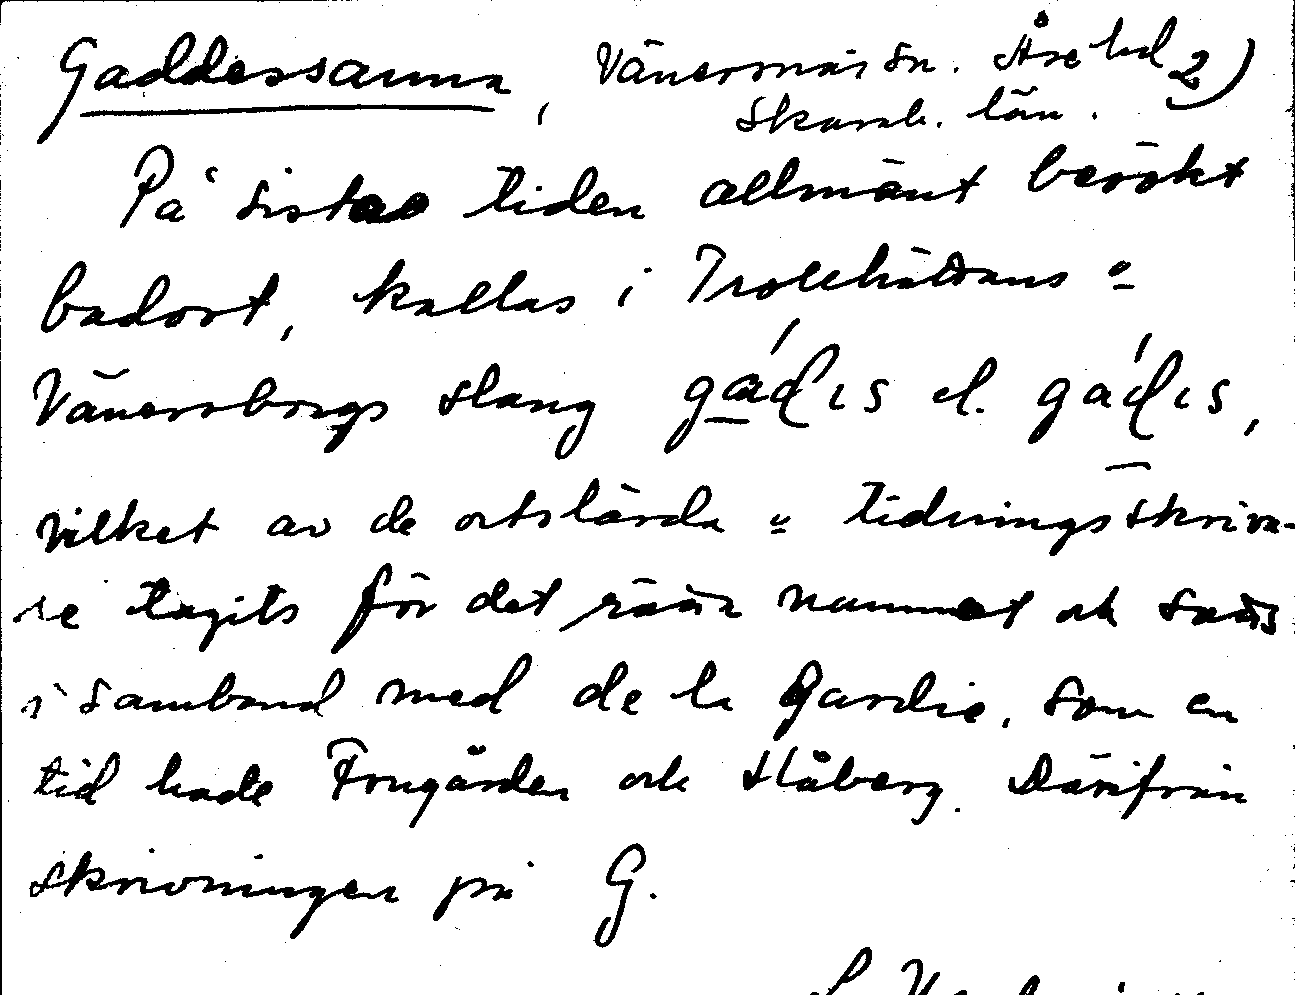 Gaddessanna, Vänersnäs sn. Åse hd 2)
Skarab. län.
På sista tiden allmänt besökt
badort, kallas i Trollhättans o
Vänersborgs slang gádıs el. gádıs,
vilket av de ortslärda o tidningsskriva-
re tagits för det rätta namnet och satts
i samband med de la Gardie, som en
tid hade Frugården och Håberg. Därifrån
skrivningen på G.